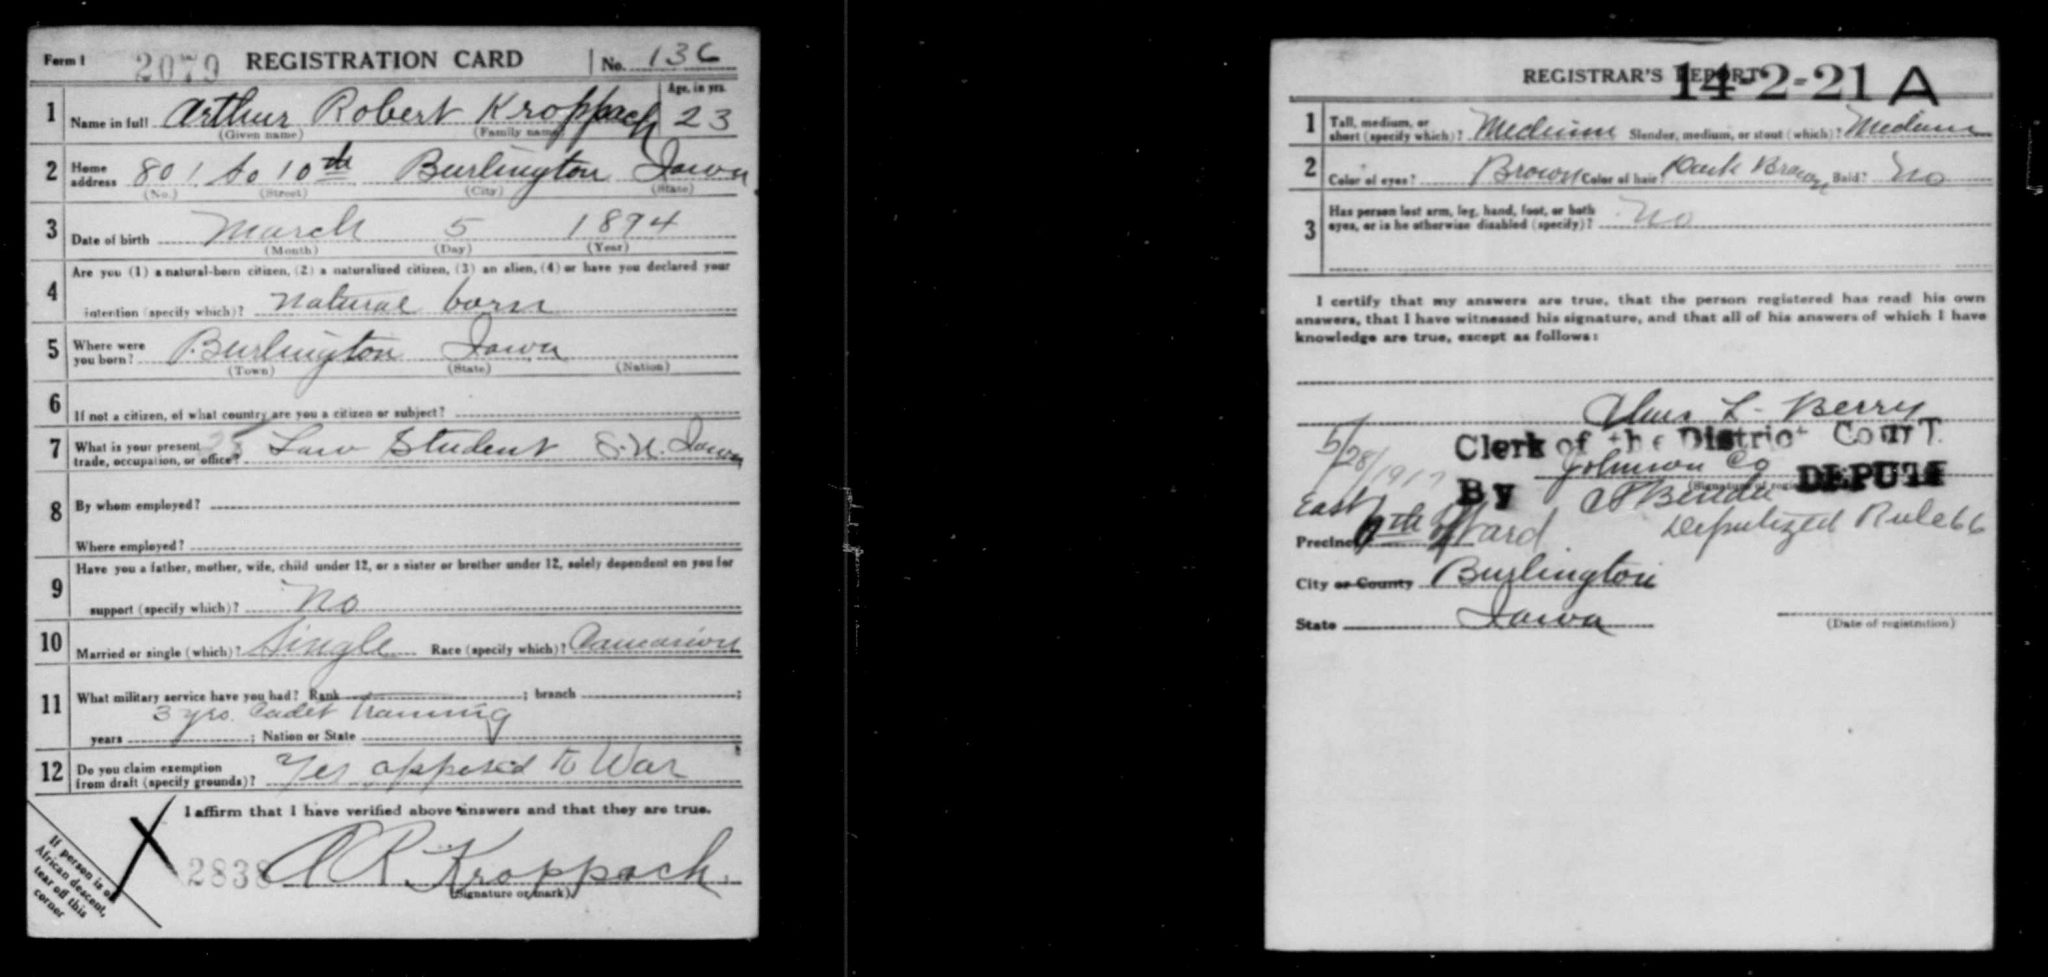 Form 1 2079 REGISTRATION CARD No. 136
1 Name in full Arthur Robert Kroppach Age, in yrs. 23
(Given name) (Family name)
2 Home address 801 So 10th Burlington Iowa
(No.) (Street) (City) (State)
3 Date of birth March 5 1894
(Month) (Day) (Year)
4 Are you (1) a natural-born citizen, (2) a naturalized citizen, (3) an alien, (4) or have you declared your
intention (specify which)? natural born
5 Where were you born? Burlington Iowa
(Town) (State) (Nation)
6 If not a citizen, of what country are you a citizen or subject?
7 What is your present trade, occupation, or office? Law Student S.U. Iowa
8 By whom employed?
Where employed?
9 Have you a father, mother, wife, child under 12, or a sister or brother under 12, solely dependent on you for
support (specify which)? No
10 Married or single (which)? Single Race (specify which)? Caucasion
11 What military service have you had? Rank ; branch ;
3 yrs. Cadet Training
years ; Nation or State
12 Do you claim exemption from draft (specify grounds)? Yes opposed to War
I affirm that I have verified above answers and that they are true.
2838 A R Kroppach
(Signature or mark)
If person is of
African descent,
tear off this
corner
REGISTRAR'S REPORT 14-2-21 A
1 Tall, medium, or short (specify which)? Medium Slender, medium, or stout (which)? Medium
2 Color of eyes? Brown Color of hair? Dark Brown Bald? No
3 Has person lost arm, leg, hand, foot, or both
eyes, or is he otherwise disabled (specify)? No
I certify that my answers are true, that the person registered has read his own
answers, that I have witnessed his signature, and that all of his answers of which I have
knowledge are true, except as follows:
L. Berry
5/28/1917 Clerk of the District Court.
Johnson Co
By Bender DEPUTY
East
Precinct Ward Deputized Rule 66
City or County Burlington
State Iowa
(Date of registration)